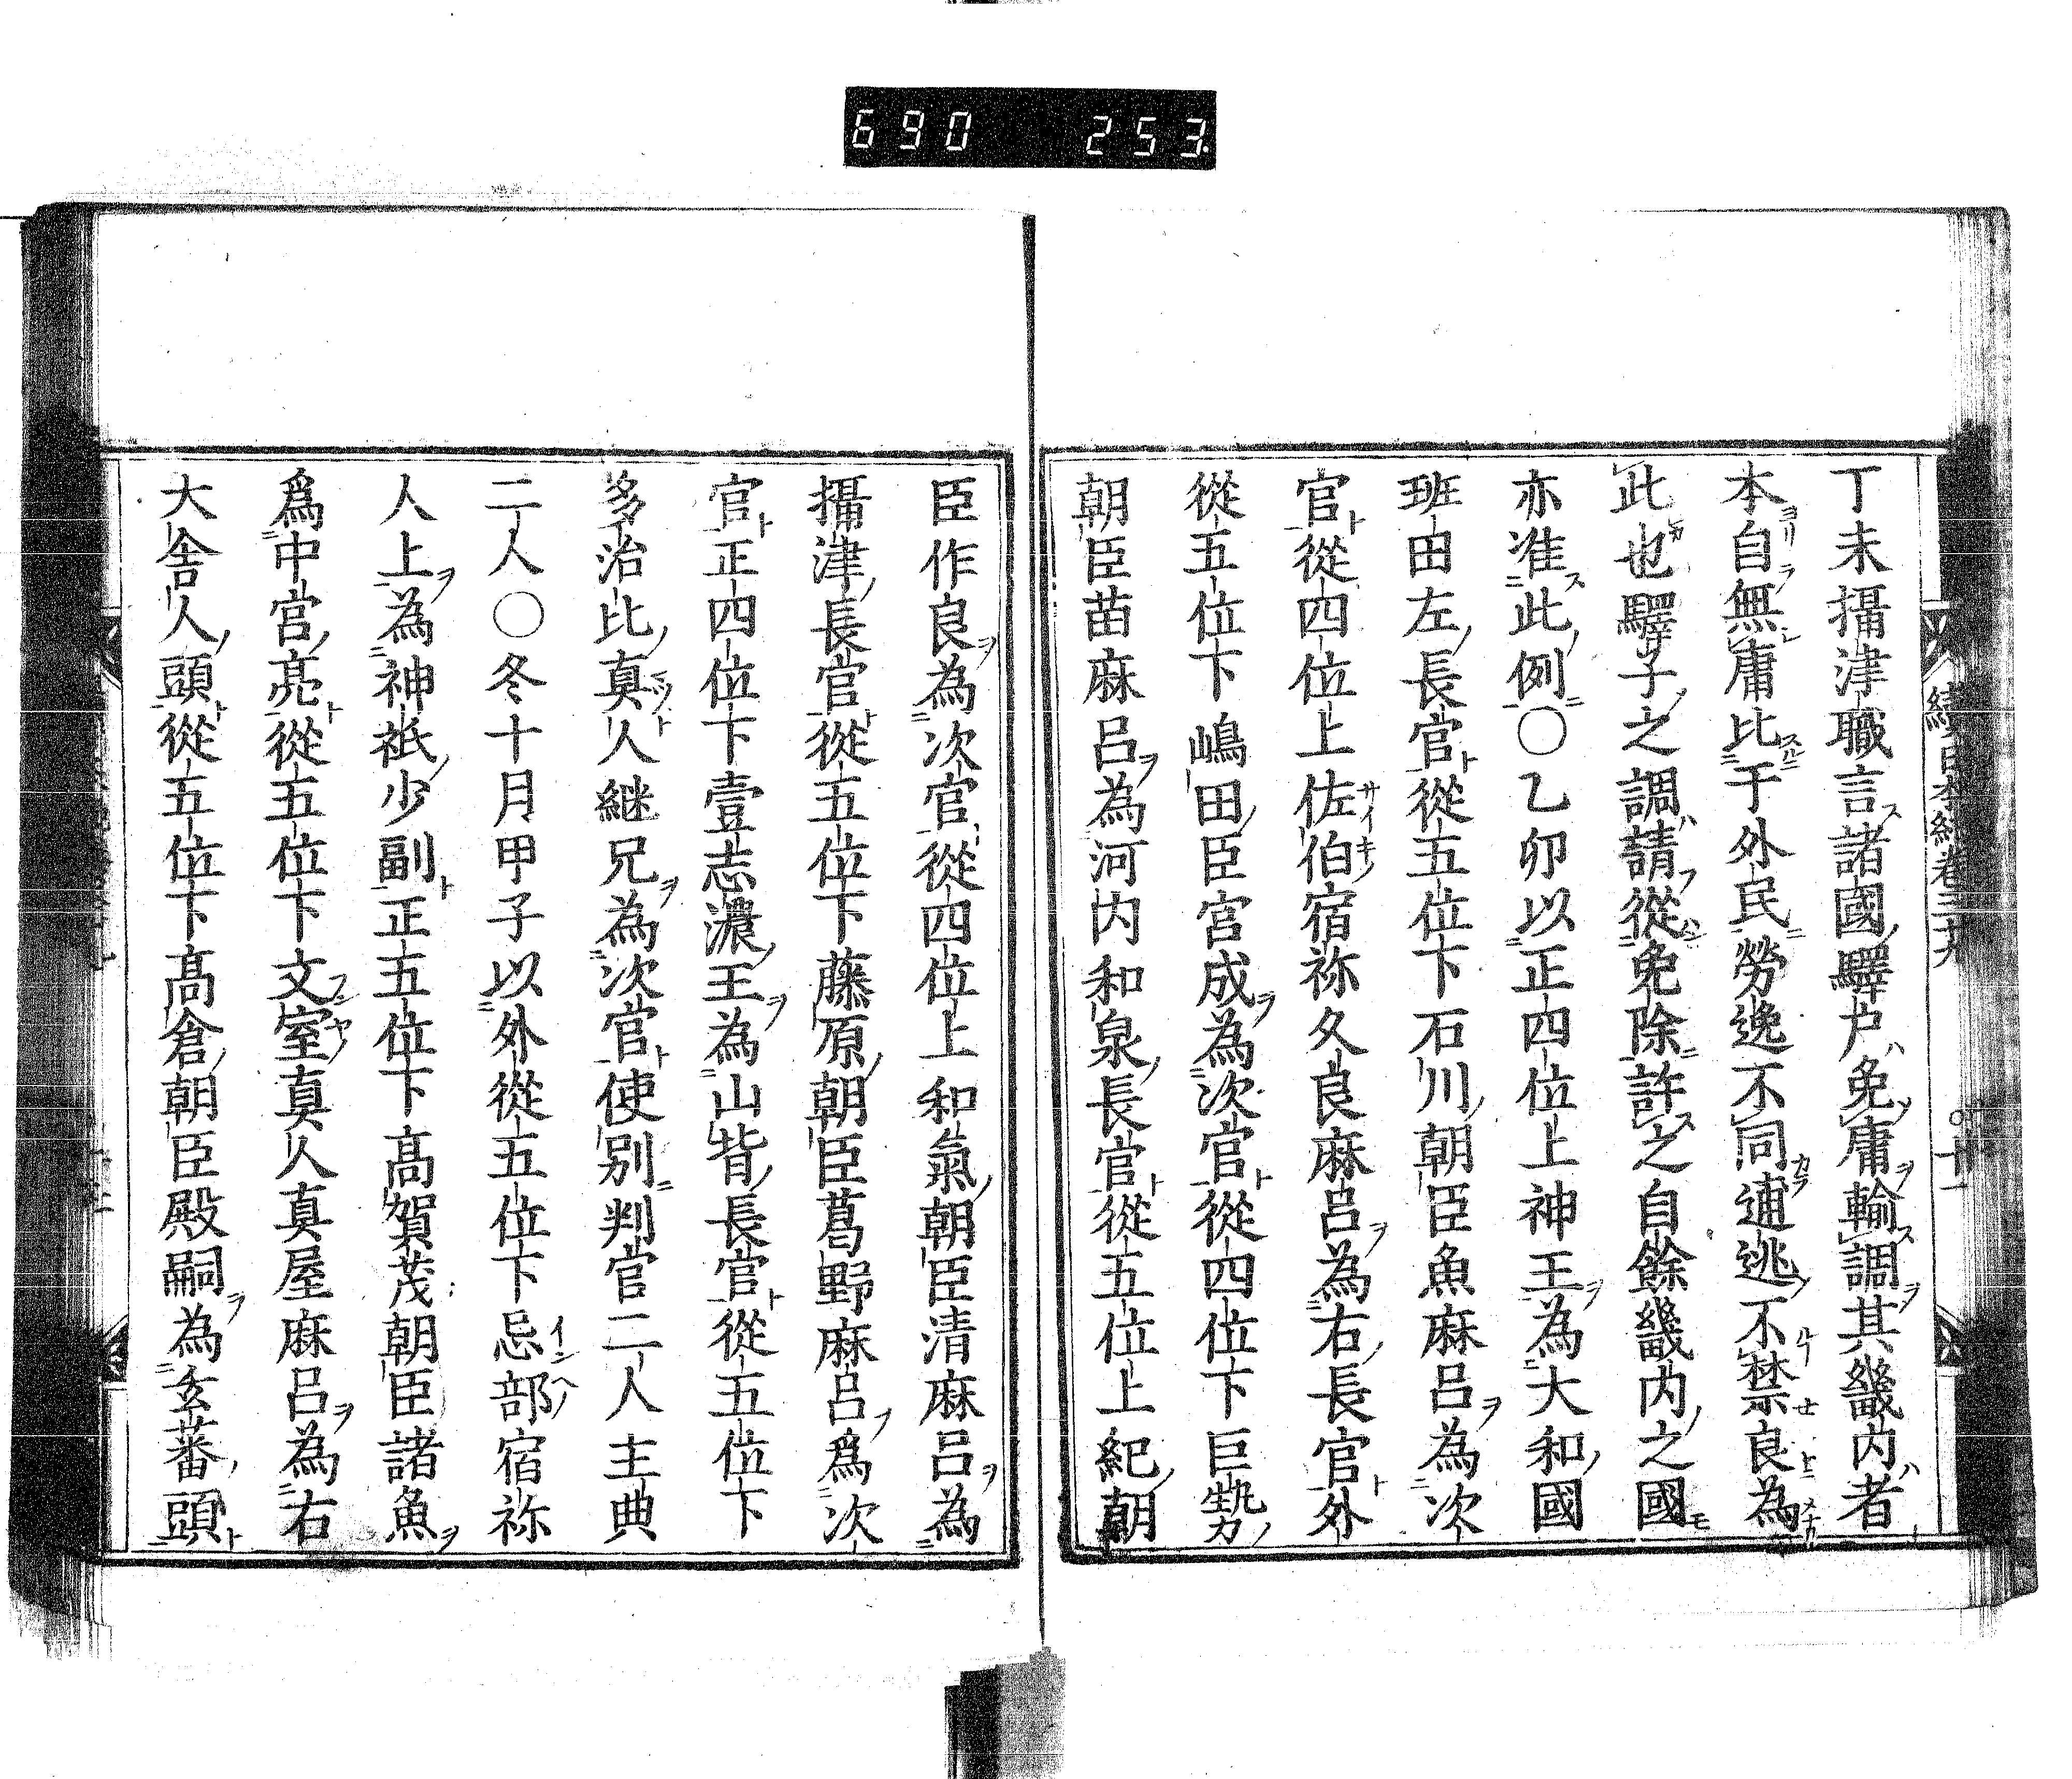 690 253
續日本紀卷三十九
丁未攝津職言諸國驛户免庸輸調其畿内者
本自無庸比于外民勞逸不同逋逃不禁良為
此也驛子之調請從免除許之自餘畿内之國
亦准此例〇乙卯以正四位上神王為大和國
班田左長官從五位下石川朝臣魚麻呂為次
官從四位上佐伯宿祢久良麻呂為右長官外
從五位下嶋田臣宮成為次官從四位下巨勢
朝臣苗麻呂為河内和泉長官從五位上紀朝
臣作良為次官從四位上和氣朝臣清麻呂為
攝津長官從五位下藤原朝臣葛野麻呂爲次
官正四位下壹志濃王為山背長官從五位下
多治比真人継兄為次官使別判官二人主典
二人〇冬十月甲子以外從五位下忌部宿祢
人上為神祇少副正五位下髙賀茂朝臣諸魚
爲中宮亮從五位下文室真人真屋麻呂為右
大舍人頭從五位下髙倉朝臣殿嗣為玄蕃頭